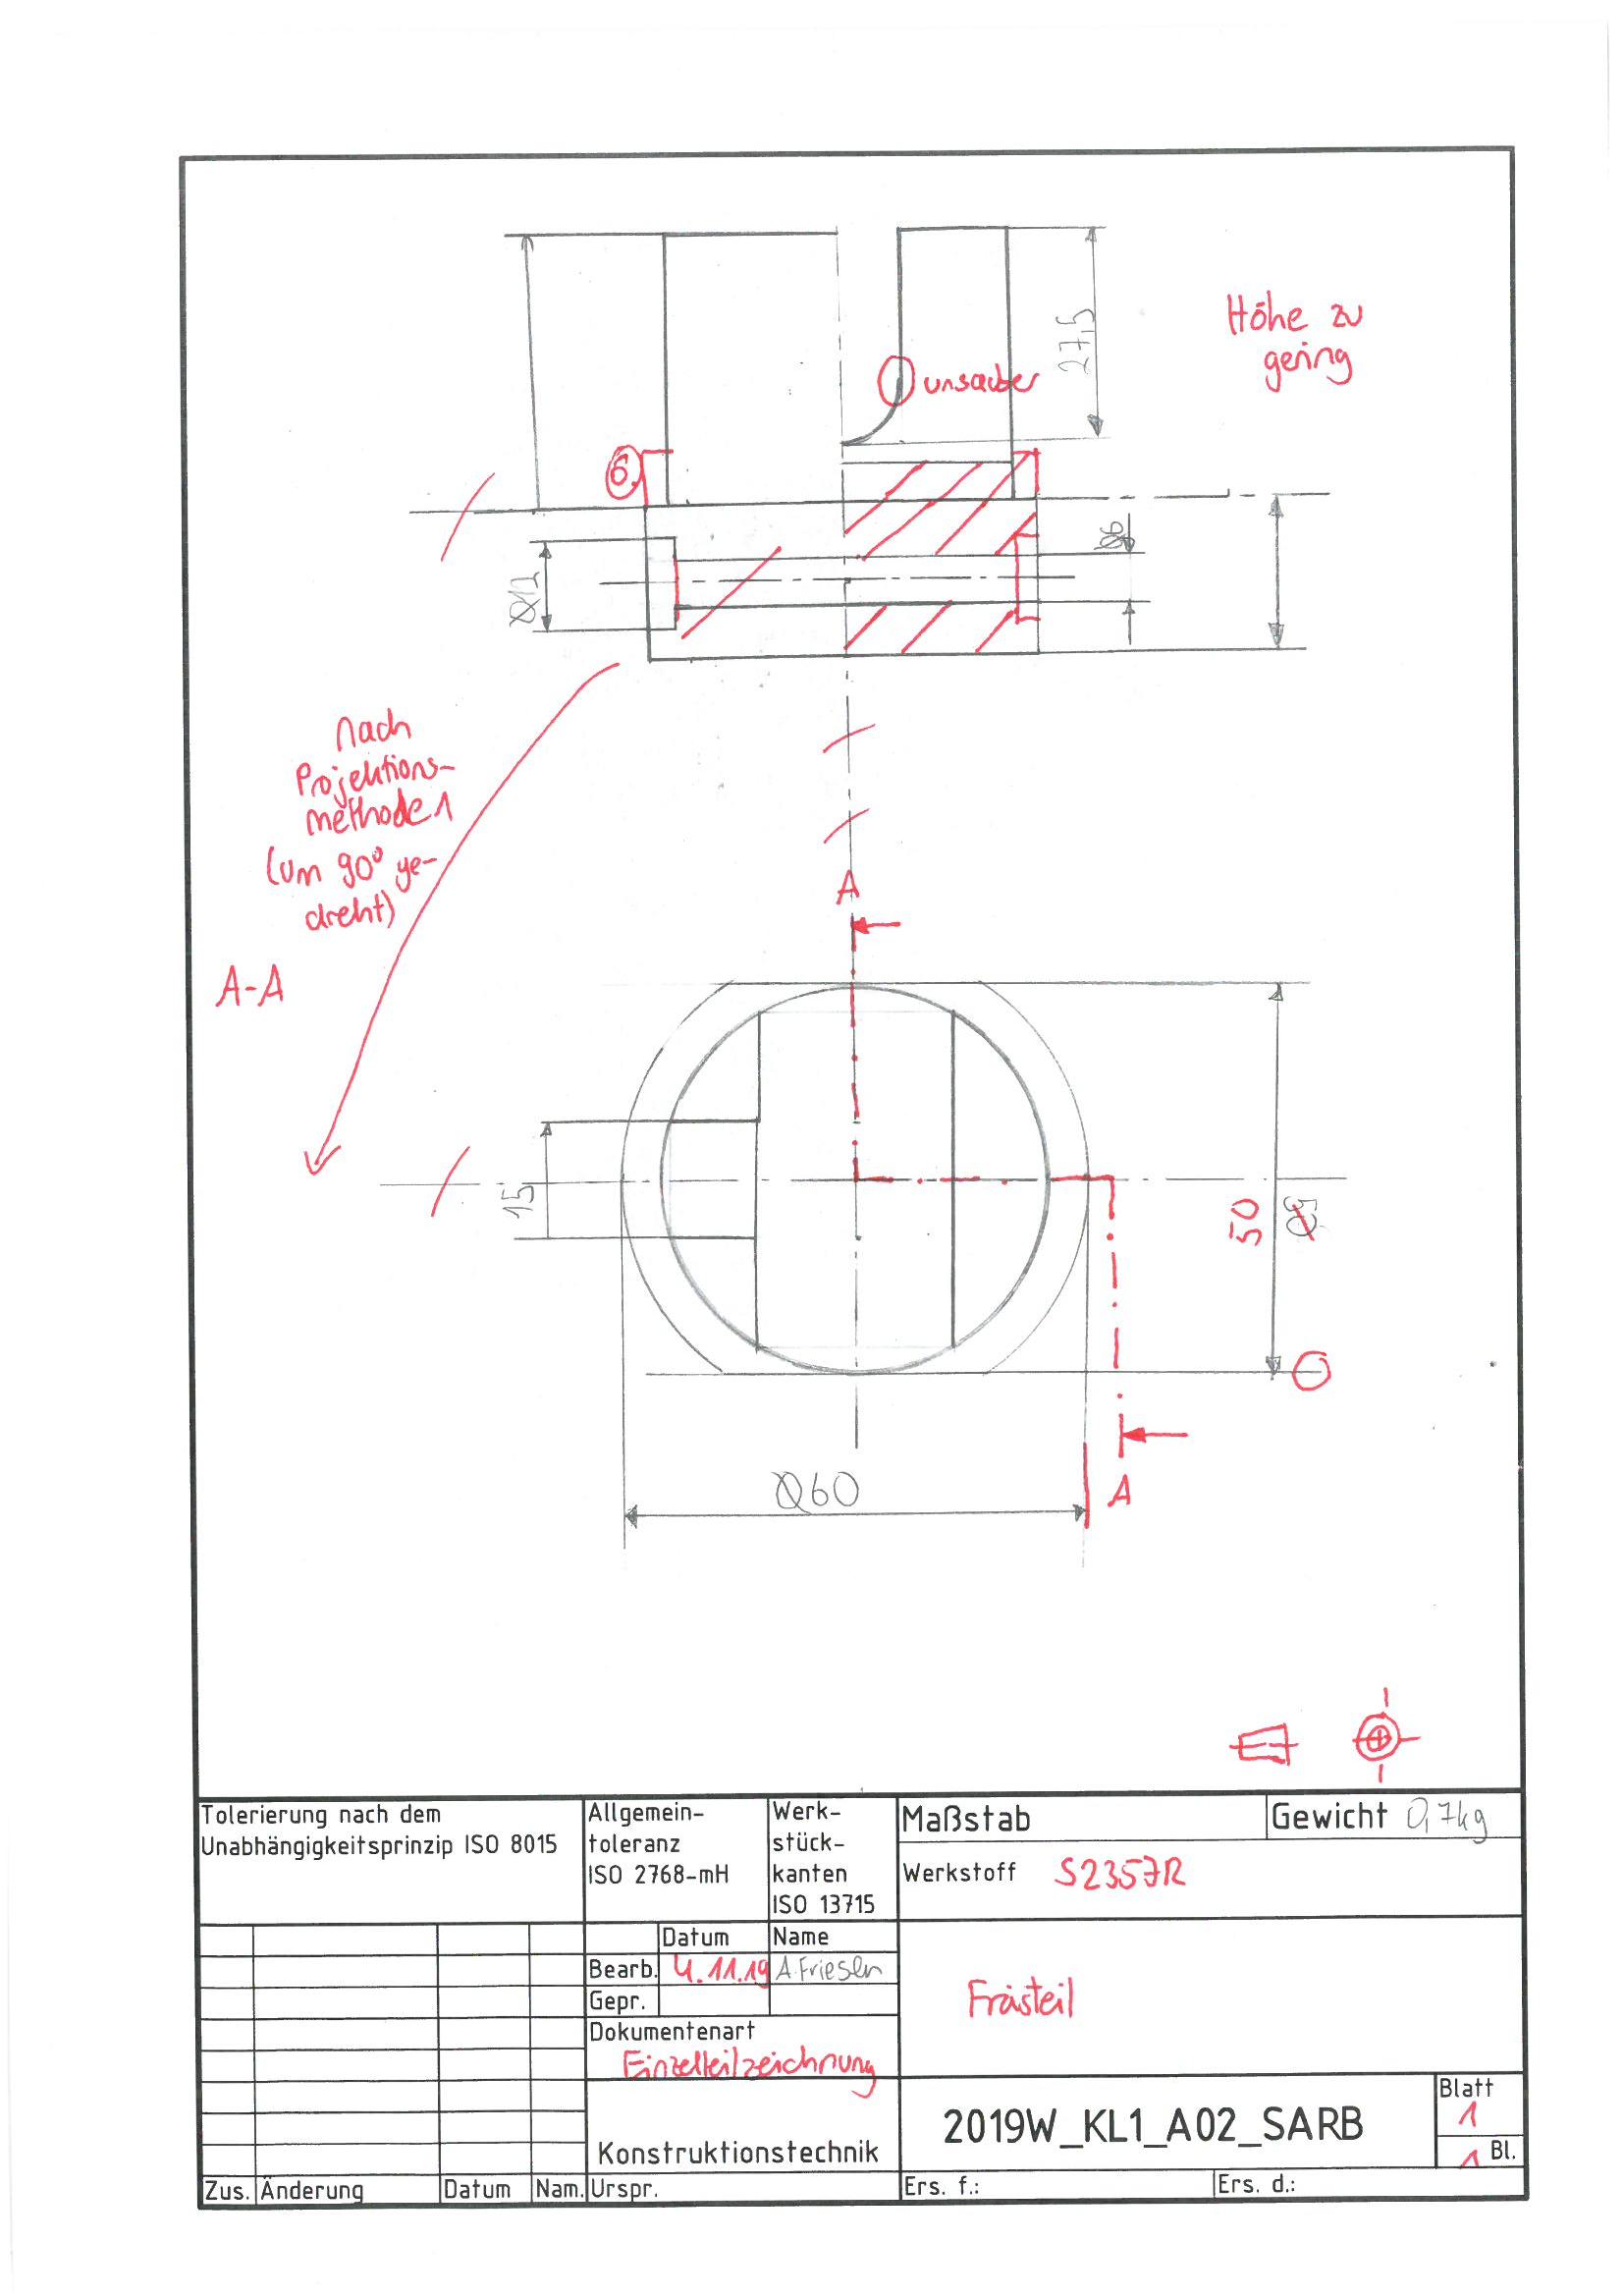 Höhe zu
gering
27,5
unsauber
6
Ø12
Ø6
nach
Projektions-
methode 1
(um 90° ge-
dreht)
A
A-A
15
50
Ø60
A
Tolerierung nach dem
Unabhängigkeitsprinzip ISO 8015
Allgemein-
toleranz
ISO 2768-mH
Werk-
stück-
kanten
ISO 13715
Maßstab
Gewicht 0,7kg
Werkstoff S235JR
Datum Name
Bearb. 4.11.19 A.Friesen
Gepr.
Dokumentenart
Einzelteilzeichnung
Frästeil
Konstruktionstechnik
2019W_KL1_A02_SARB
Blatt
1
1 Bl.
Zus. Änderung Datum Nam. Urspr. Ers. f.: Ers. d.: